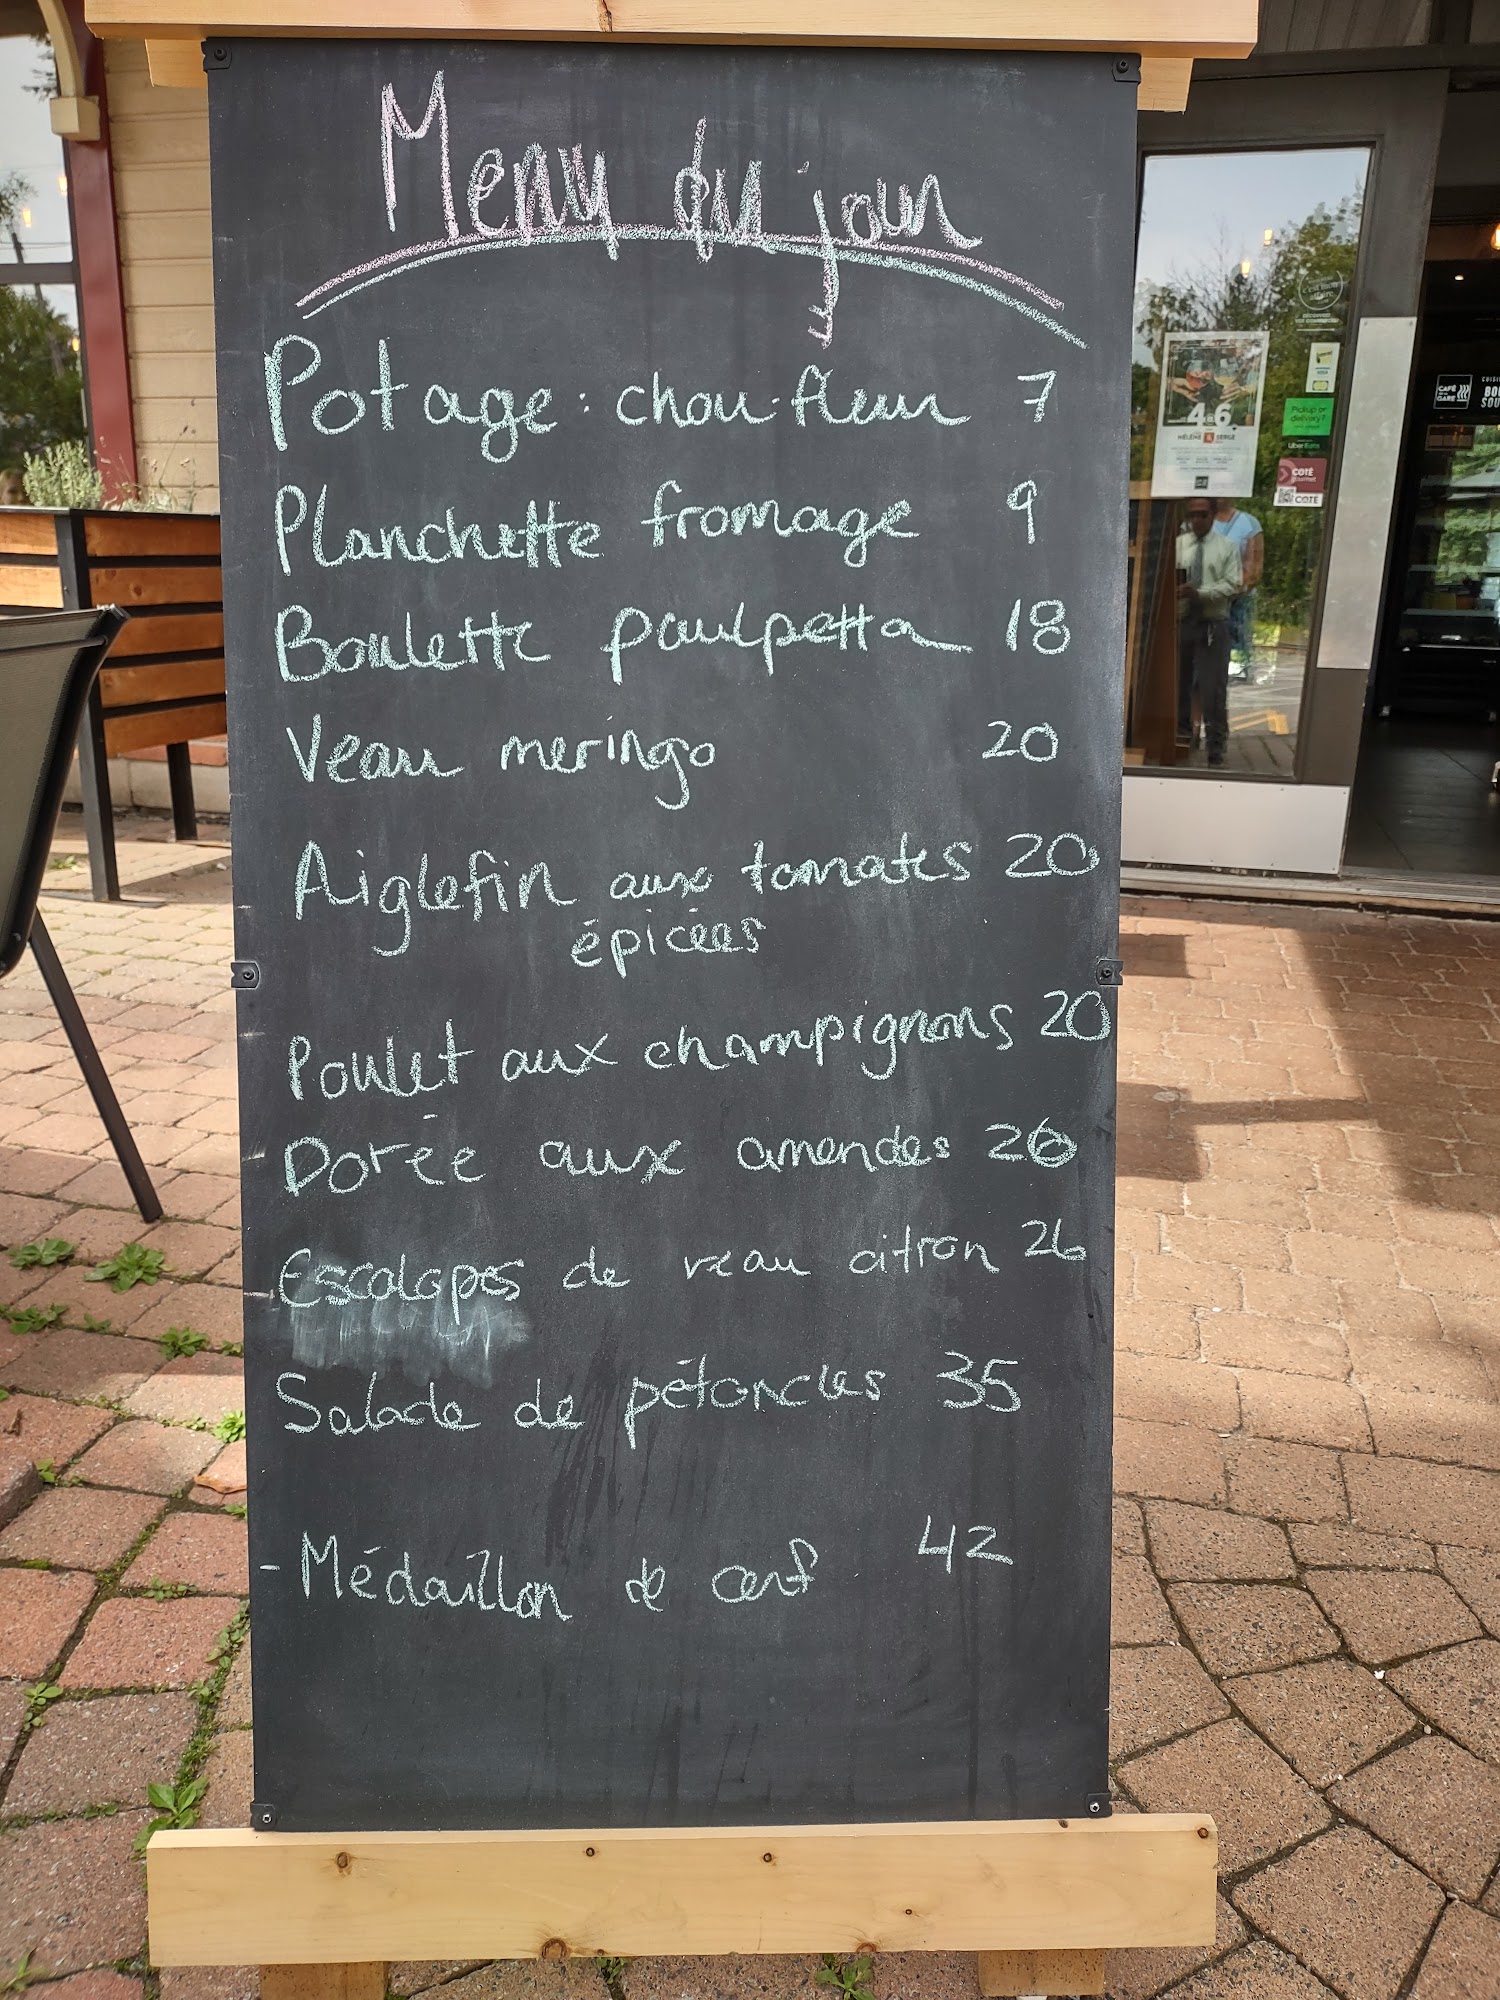 Menu du jour
Potage : chou-fleur 7
Planchette fromage 9
Boulette paulpetta 18
Veau meringo 20
Aiglefin aux tomates 20
épicées
Poulet aux champignons 20
Dorée aux amendes 26
Escalopes de veau citron 26
Salade de pétoncles 35
- Médaillon de cerf 42
4à6
HÉLÈNE & SERGE
Pickup or
delivery?
Uber Eats
COTÉ
gourmet
COTÉ
VISA
CAFÉ
DE LA
GARE